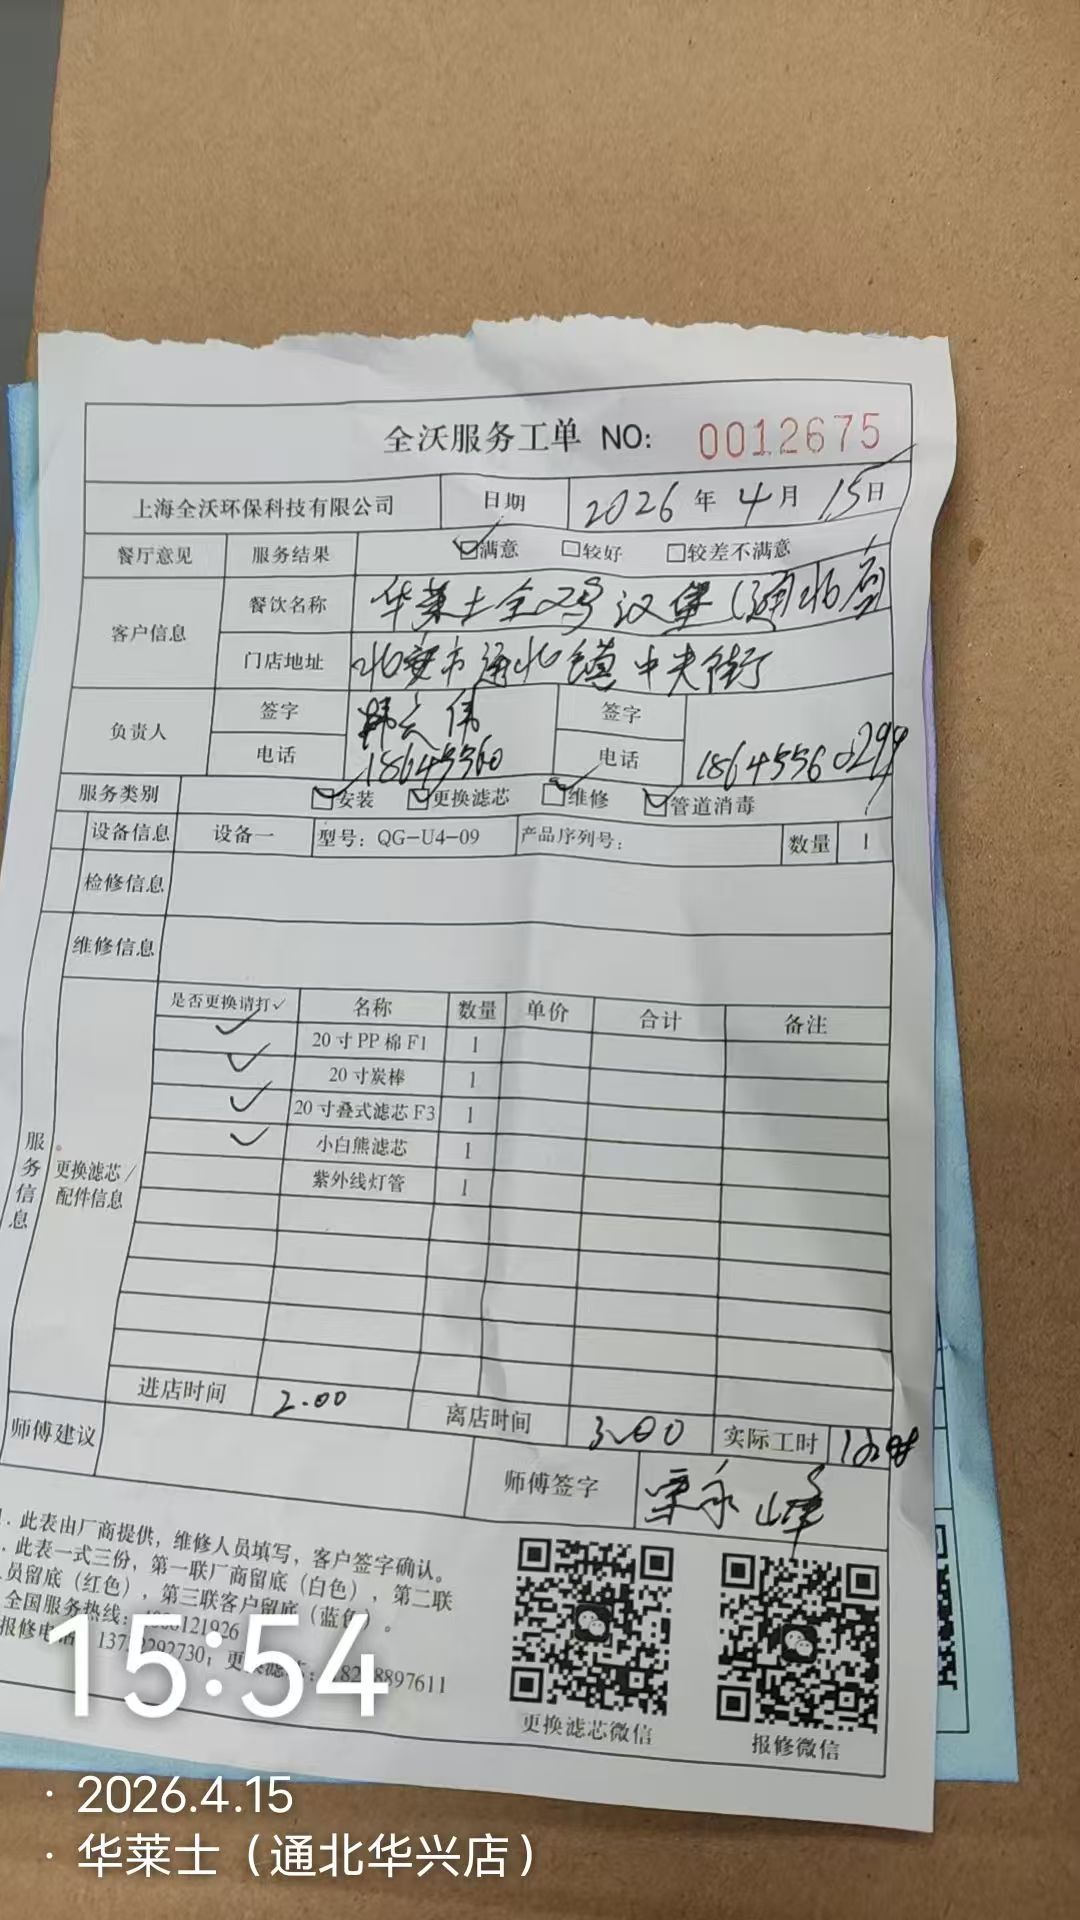 全沃服务工单 NO: 0012675
上海全沃环保科技有限公司 日期 2026年4月15日
餐厅意见 服务结果 ☑满意 □较好 □较差不满意
客户信息 餐饮名称 华莱士全鸡汉堡(通北店
门店地址 北安市通北镇中央街
负责人 签字 伟 签字
电话 18645560 电话 18645560294
服务类别 ☑安装 ☑更换滤芯 ☑维修 ☑管道消毒
设备信息 设备一 型号: QG-U4-09 产品序列号: 数量 1
检修信息
维修信息
服务信息
更换滤芯/配件信息
是否更换请打✓ 名称 数量 单价 合计 备注
✓ 20寸PP棉F1 1
✓ 20寸炭棒 1
✓ 20寸叠式滤芯F3 1
✓ 小白熊滤芯 1
紫外线灯管 1
进店时间 2.00 离店时间 3.00 实际工时
师傅建议 师傅签字 永峰
. 此表由厂商提供，维修人员填写，客户签字确认。
. 此表一式三份，第一联厂商留底（白色），第二联
员留底（红色），第三联客户留底（蓝色）。
全国服务热线: 121926
报修电 292730; 更换滤 8897611
更换滤芯微信 报修微信
15:54
· 2026.4.15
· 华莱士（通北华兴店）